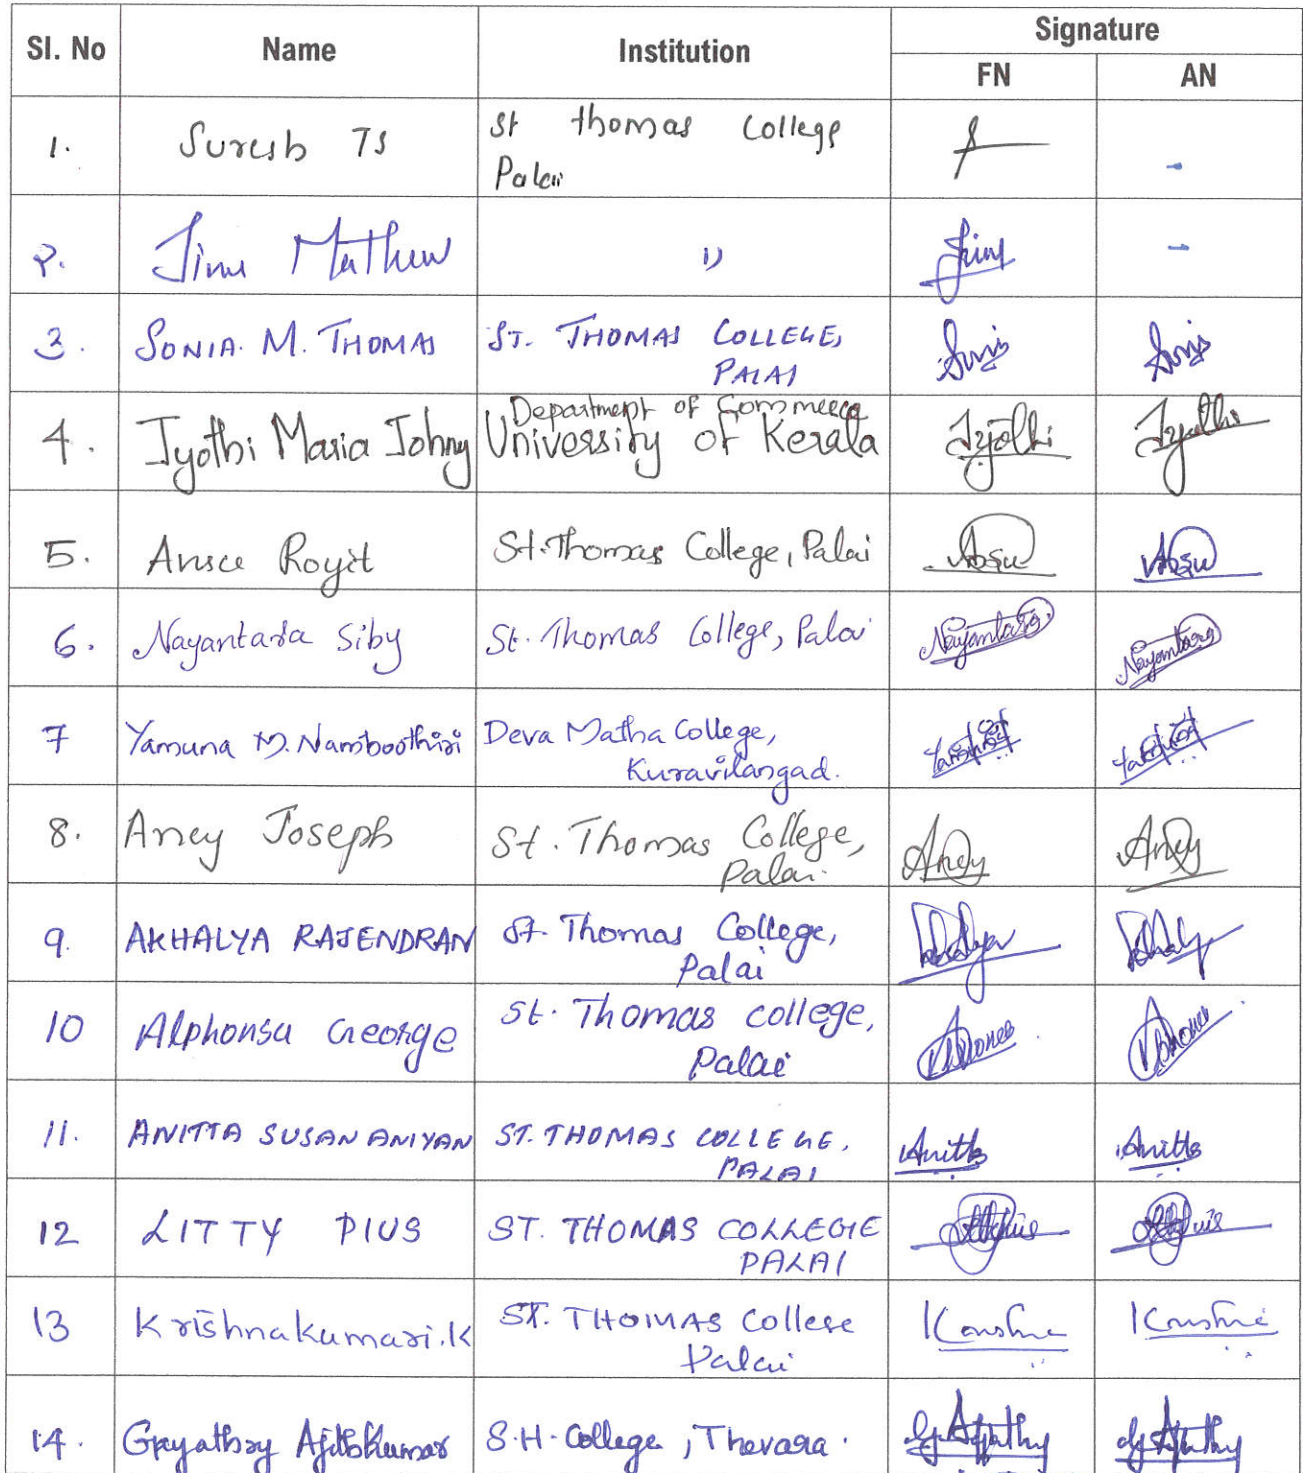 Sl. No Name Institution Signature
FN AN
1. Suresh TS St thomas College
Palai
-
2. Jinu Mathew 1) -
3. SONIA. M. THOMAS ST. THOMAS COLLEGE,
PALAI
4. Jyothi Maria Johny Department of Commerce
University of Kerala Jyothi Jyothi
5. Ansce Royit St. Thomas College, Palai
6. Nayantara Siby St. Thomas College, Palai Nayantara Nayantara
7 Yamuna M. Namboothiri Deva Matha College,
Kuravilangad.
8. Ancy Joseph St. Thomas College,
Palai. Ancy Ancy
9. AKHALYA RAJENDRAN St. Thomas College,
Palai
10 Alphonsa George St. Thomas college,
Palai
11. ANITTA SUSAN ANIYAN ST. THOMAS COLLEGE,
PALAI Anitta Anitta
12 LITTY PIUS ST. THOMAS COLLEGE
PALAI
13 Krishnakumari.K ST. THOMAS College
Palai
14. Gayathry Ajithkumar S.H. College, Thevara.